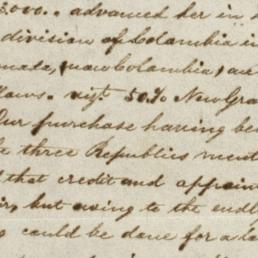 3.000.. advanced her in
division of Colambia in
mata, now Colambia, au
laws. viz. 50% New Gra
Our purchase having be
three Republics ment
that credit and appoin
but owing to the endl
could be done for a